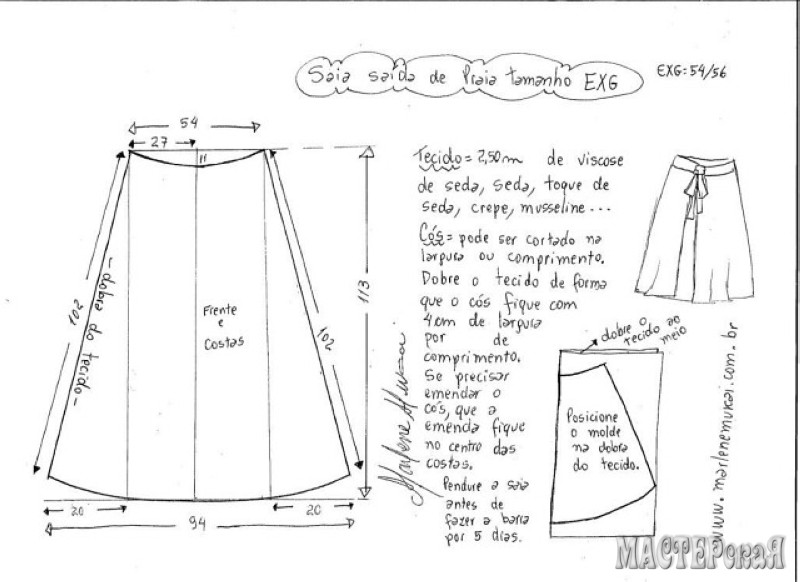 Saia saída de Praia tamanho EXG
EXG=54/56
54
27
11
Tecido= 2,50m de viscose
de seda, seda, toque de
seda, crepe, musseline...
Cós= pode ser cortado na
largura ou comprimento.
Dobre o tecido de forma
que o cós fique com
4cm de largura
por de
comprimento.
Se precisar
emendar o
cós, que a
emenda fique
no centro das
costas.
Pendure a saia
antes de
fazer a barra
por 5 dias.
102
-dobra do tecido-
Frente
e
Costas
102
113
20
20
94
Marlene Mukai
dobre o
tecido ao
meio
Posicione
o molde
na dobra
do tecido.
www.marlenemukai.com.br
МАСТЕРская